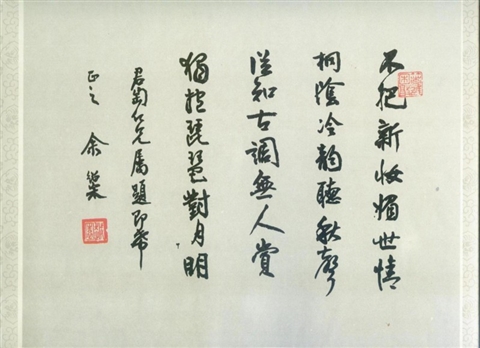 不把新妝媚世情
桐陰冷韻聽秋聲
從知古調無人賞
獨抱琵琶對月明
君匋仁兄屬題即希
正之 余棨